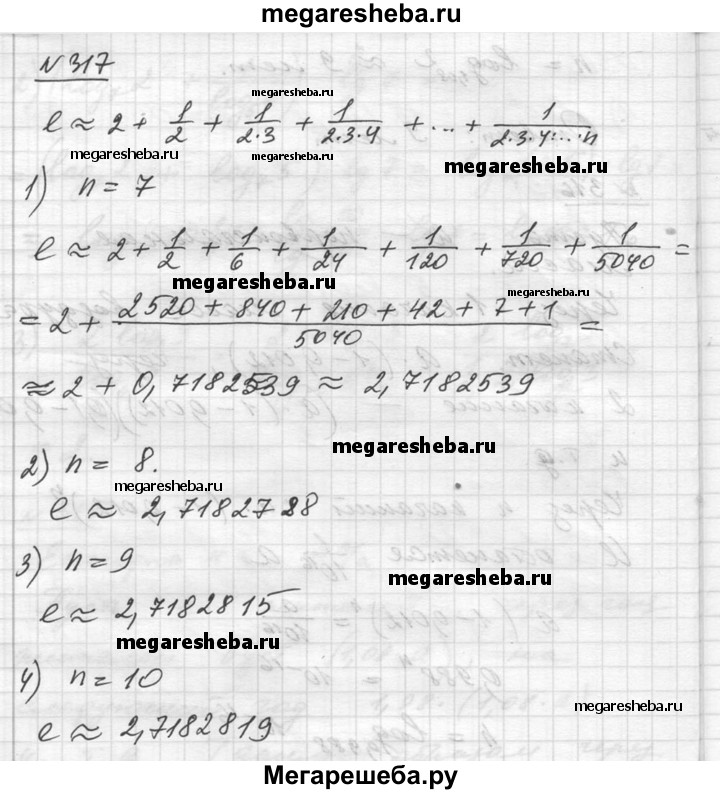 megaresheba.ru
N 317
megaresheba.ru
e ≈ 2 + 1/2 + 1/2·3 + 1/2·3·4 + ... + 1/2·3·4·...·n
megaresheba.ru
megaresheba.ru
megaresheba.ru
1) n = 7
e ≈ 2 + 1/2 + 1/6 + 1/24 + 1/120 + 1/720 + 1/5040 =
megaresheba.ru
megaresheba.ru
= 2 + 2520 + 840 + 210 + 42 + 7 + 1/5040 =
≈ 2 + 0,7182539 ≈ 2,7182539
megaresheba.ru
2) n = 8.
megaresheba.ru
e ≈ 2,7182788
3) n = 9
megaresheba.ru
e ≈ 2,7182815
megaresheba.ru
4) n = 10
megaresheba.ru
e ≈ 2,7182819
Мегарешеба.ру